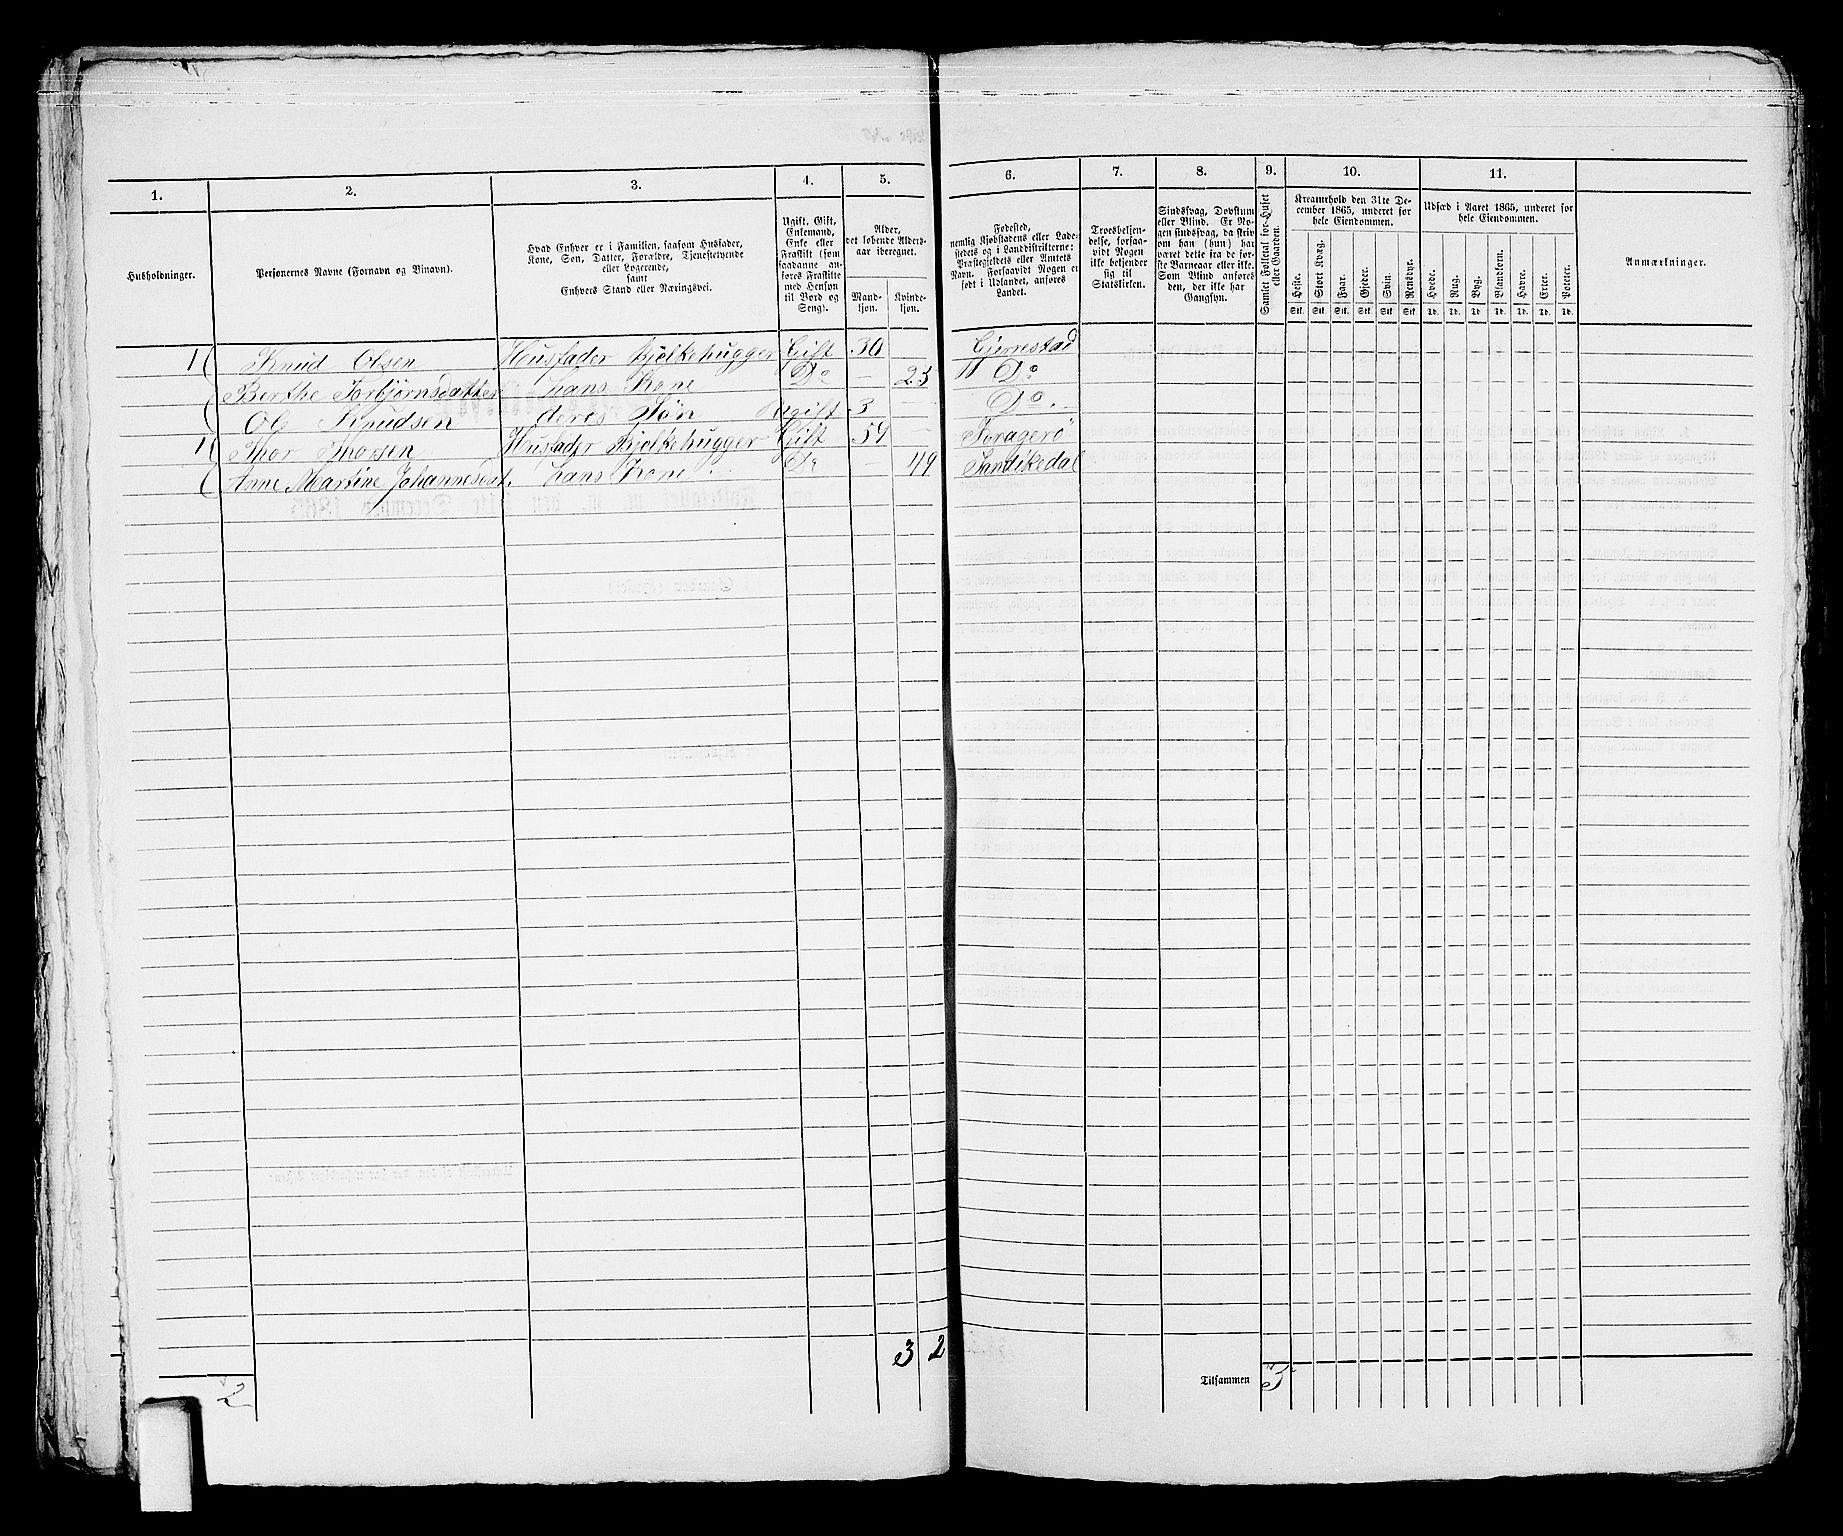 1. 2. 3. 4. 5. 6. 7. 8. 9. 10. 11.
Husholdninger.
Personernes Navne (Fornavn og Binavn).
Hvad Enhver er i Familien, saasom Husfader,
Kone, Søn, Datter, Forældre, Tjenestetyende
eller Logerende,
samt
Enhvers Stand eller Næringsvei.
Ugift, Gift,
Enkemand,
Enke eller
Fraskilt (som
saadanne an-
føres Fraskilte
med Hensyn
til Bord og
Seng).
Alder,
det løbende Alders-
aar iberegnet.
Mand-
kjøn.
Kvinde-
kjøn.
Fødested,
nemlig Kjøbstadens eller Lade-
stedets og i Landdistrikterne:
Præstegjeldets eller Amtets
Navn. Forsaavidt Nogen er
født i Udlandet, anføres
Landet.
Troesbekjen-
delse, forsaa-
vidt Nogen
ikke bekjender
sig til
Statskirken.
Sindssvag, Døvstum
eller Blind. Er No-
gen sindssvag, da skriv
om han (hun) har
været dette fra de før-
ste Barneaar eller ikke.
Som Blind anføres
den, der ikke har
Gangsyn.
Samlet Folketal for Huset
eller Gaarden.
Kreaturhold den 31te De-
cember 1865, underet for
hele Eiendommen.
Heste. Stort Kvæg. Faar. Gjeder. Svin. Rensdyr.
Stk. Stk. Stk. Stk. Stk. Stk.
Udsæd i Aaret 1865, underet for
hele Eiendommen.
Hvede. Rug. Byg. Blandkorn. Havre. Erter. Poteter.
Td. Td. Td. Td. Td. Td. Td.
Anmærkninger.
1 Knud Olsen Husfader Bjelkehugger Gift 30 — Gjerrestad
Berthe Torbjørnsdatter hans Kone Do — 25 Do
Ole Knudsen deres Søn Ugift 3 — Do
1 Thor Thorsen Husfader Bjelkehugger Gift 54 — Foragerø
Anne Martine Johannesdat. hans Kone Do — 49 Sandikedal
3 2
2
Tilsammen